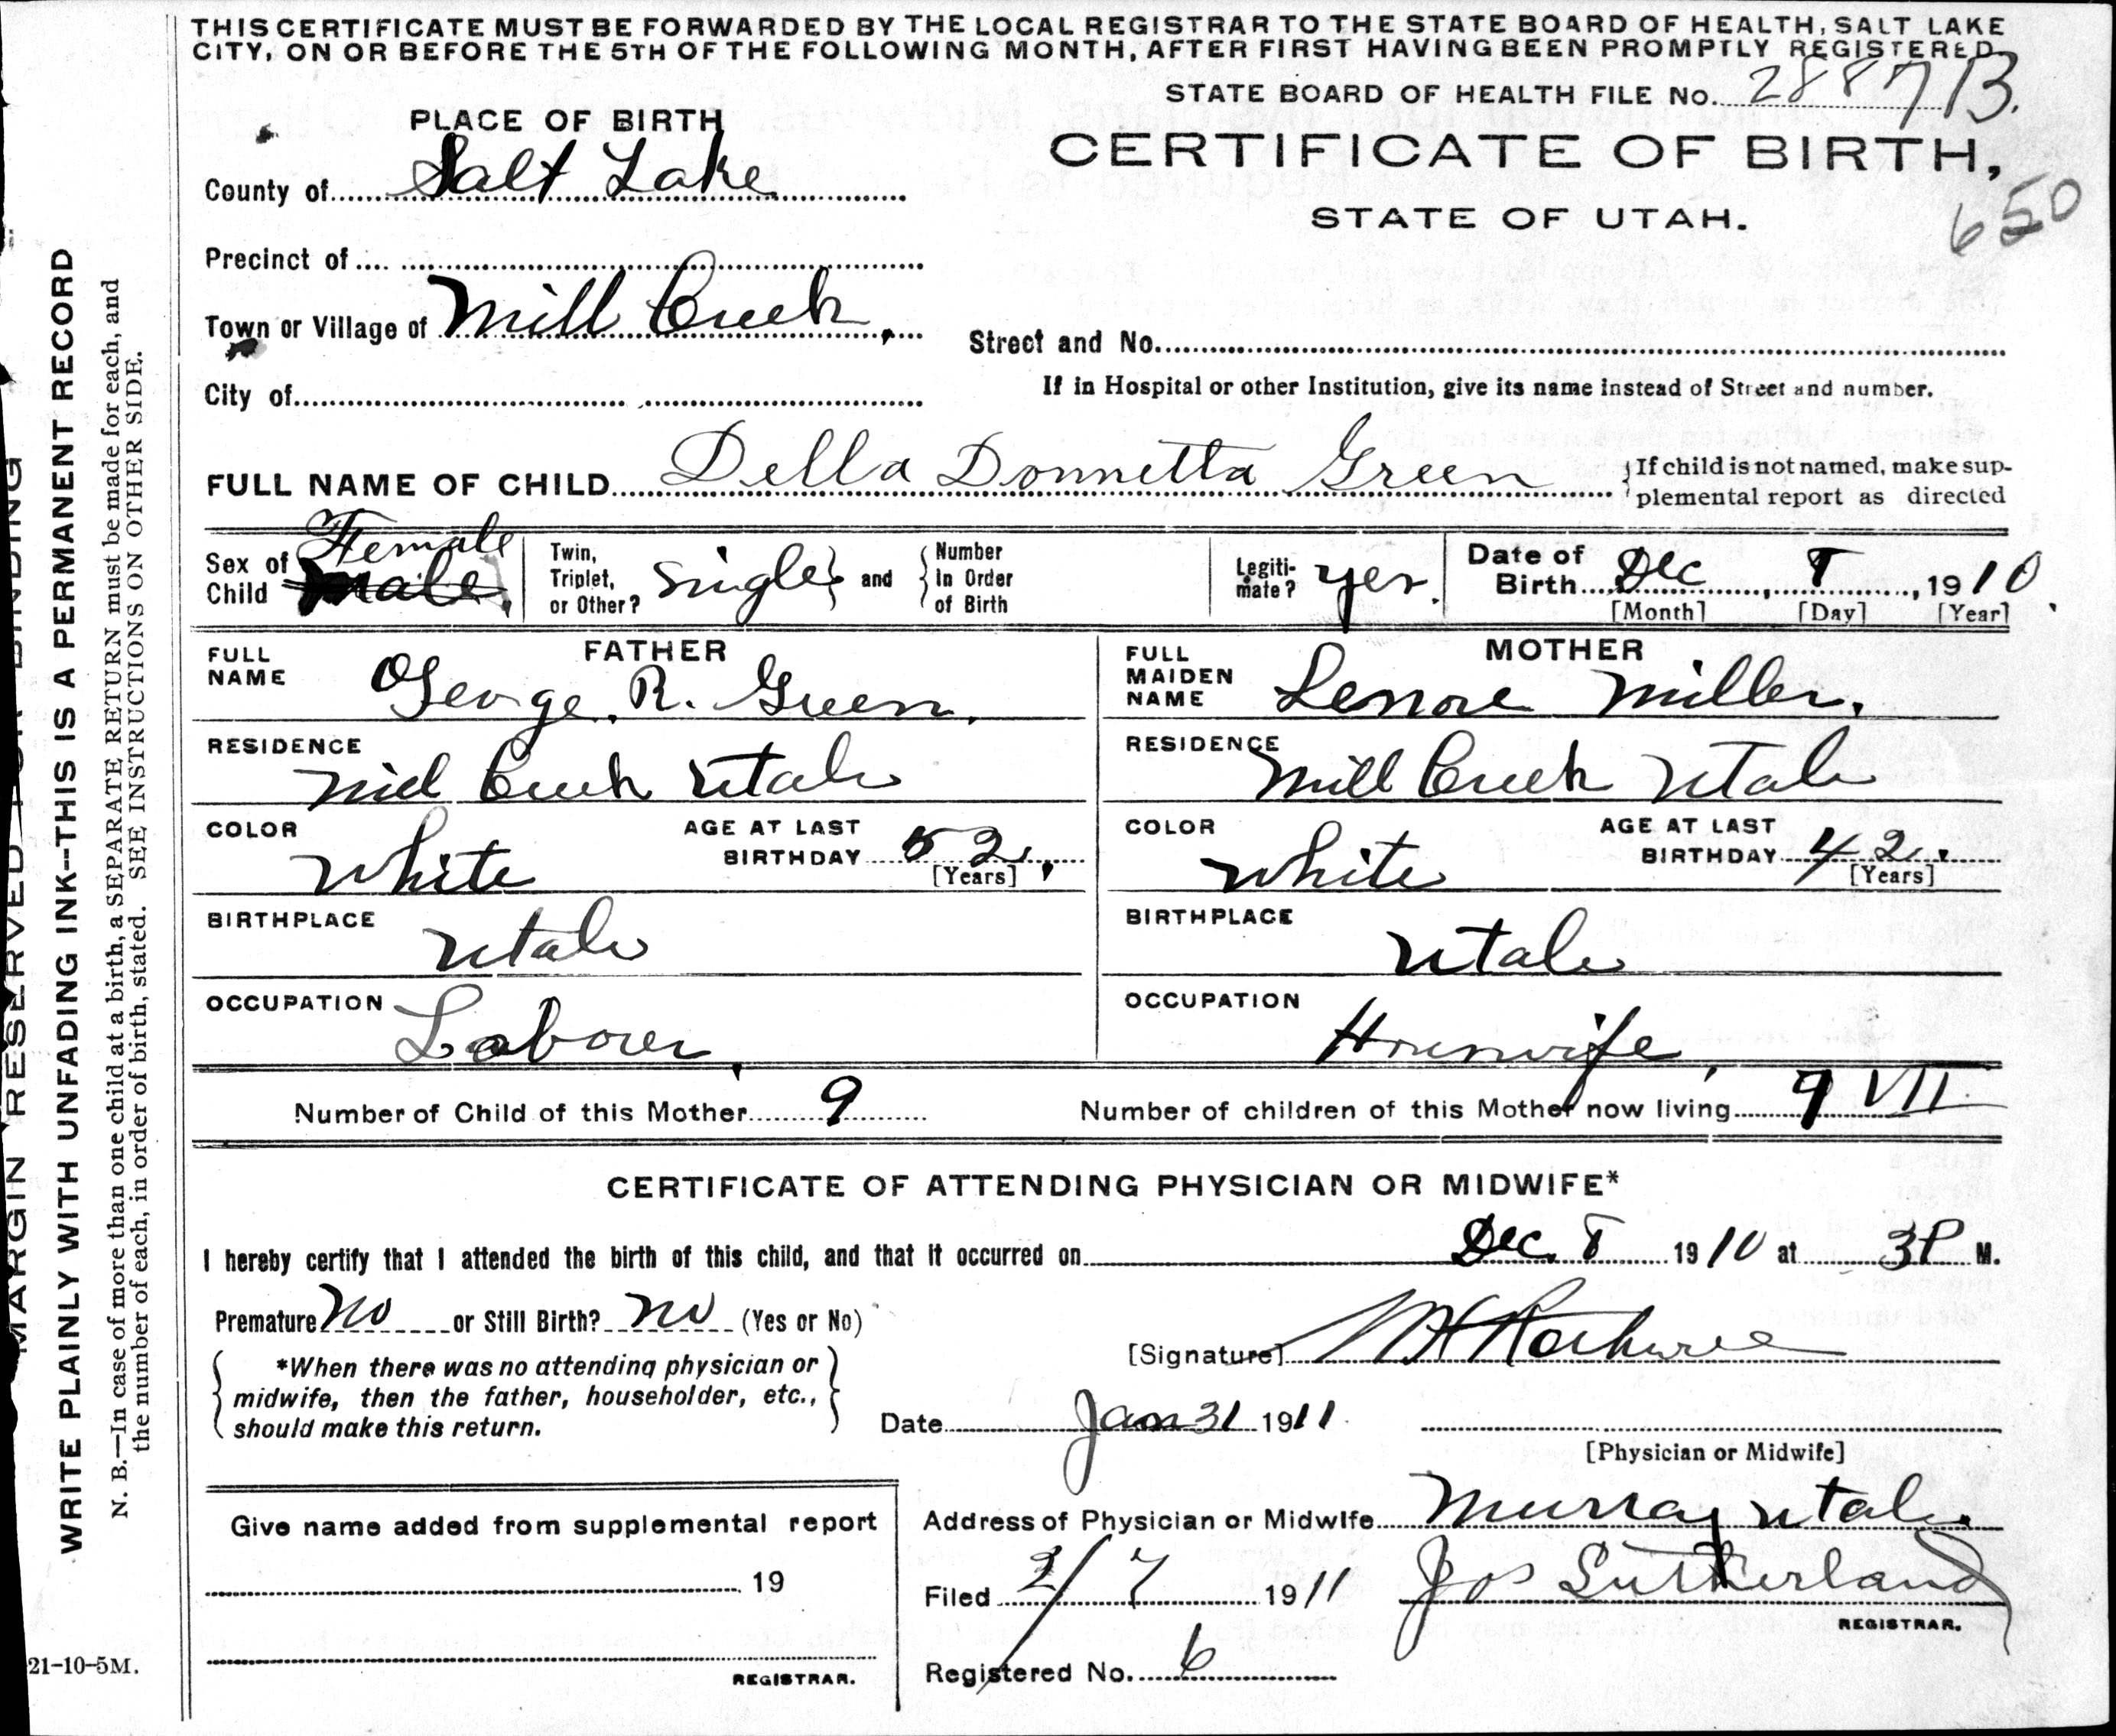 THIS CERTIFICATE MUST BE FORWARDED BY THE LOCAL REGISTRAR TO THE STATE BOARD OF HEALTH, SALT LAKE
CITY, ON OR BEFORE THE 5TH OF THE FOLLOWING MONTH, AFTER FIRST HAVING BEEN PROMPTLY REGISTERED
STATE BOARD OF HEALTH FILE No. 288713.
PLACE OF BIRTH
CERTIFICATE OF BIRTH,
County of Salt Lake
STATE OF UTAH.
650
Precinct of
Town or Village of Mill Creek.
Street and No.
City of
If in Hospital or other Institution, give its name instead of Street and number.
FULL NAME OF CHILD Della Donnetta Green
{If child is not named, make sup-
plemental report as directed
Sex of Child Female Male.
Twin, Triplet, or Other? single} and {Number in Order of Birth
Legiti-mate? yes.
Date of Birth Dec 8, 1910.
[Month] [Day] [Year]
FATHER
FULL NAME George. R. Green.
RESIDENCE Mill Creek Utah
COLOR White
AGE AT LAST BIRTHDAY 52.
[Years]
BIRTHPLACE Utah
OCCUPATION Laborer
MOTHER
FULL MAIDEN NAME Lenore Miller.
RESIDENCE Mill Creek Utah
COLOR White
AGE AT LAST BIRTHDAY 42.
[Years]
BIRTHPLACE Utah
OCCUPATION Housewife
Number of Child of this Mother 9
Number of children of this Mother now living VII
CERTIFICATE OF ATTENDING PHYSICIAN OR MIDWIFE*
I hereby certify that I attended the birth of this child, and that it occurred on Dec. 8 1910 at 3P M.
Premature No or Still Birth? No (Yes or No)
[Signature]
{*When there was no attending physician or
midwife, then the father, householder, etc.,
should make this return.}
Date Jan 31 1911
[Physician or Midwife]
Give name added from supplemental report
19
REGISTRAR.
Address of Physician or Midwife Murray Utah.
Filed 2/7 1911 Jos Sutherland
REGISTRAR.
Registered No. 6
MARGIN RESERVED FOR BINDING
WRITE PLAINLY WITH UNFADING INK--THIS IS A PERMANENT RECORD
N. B.—In case of more than one child at a birth, a SEPARATE RETURN must be made for each, and
the number of each, in order of birth, stated. SEE INSTRUCTIONS ON OTHER SIDE.
21-10-5M.